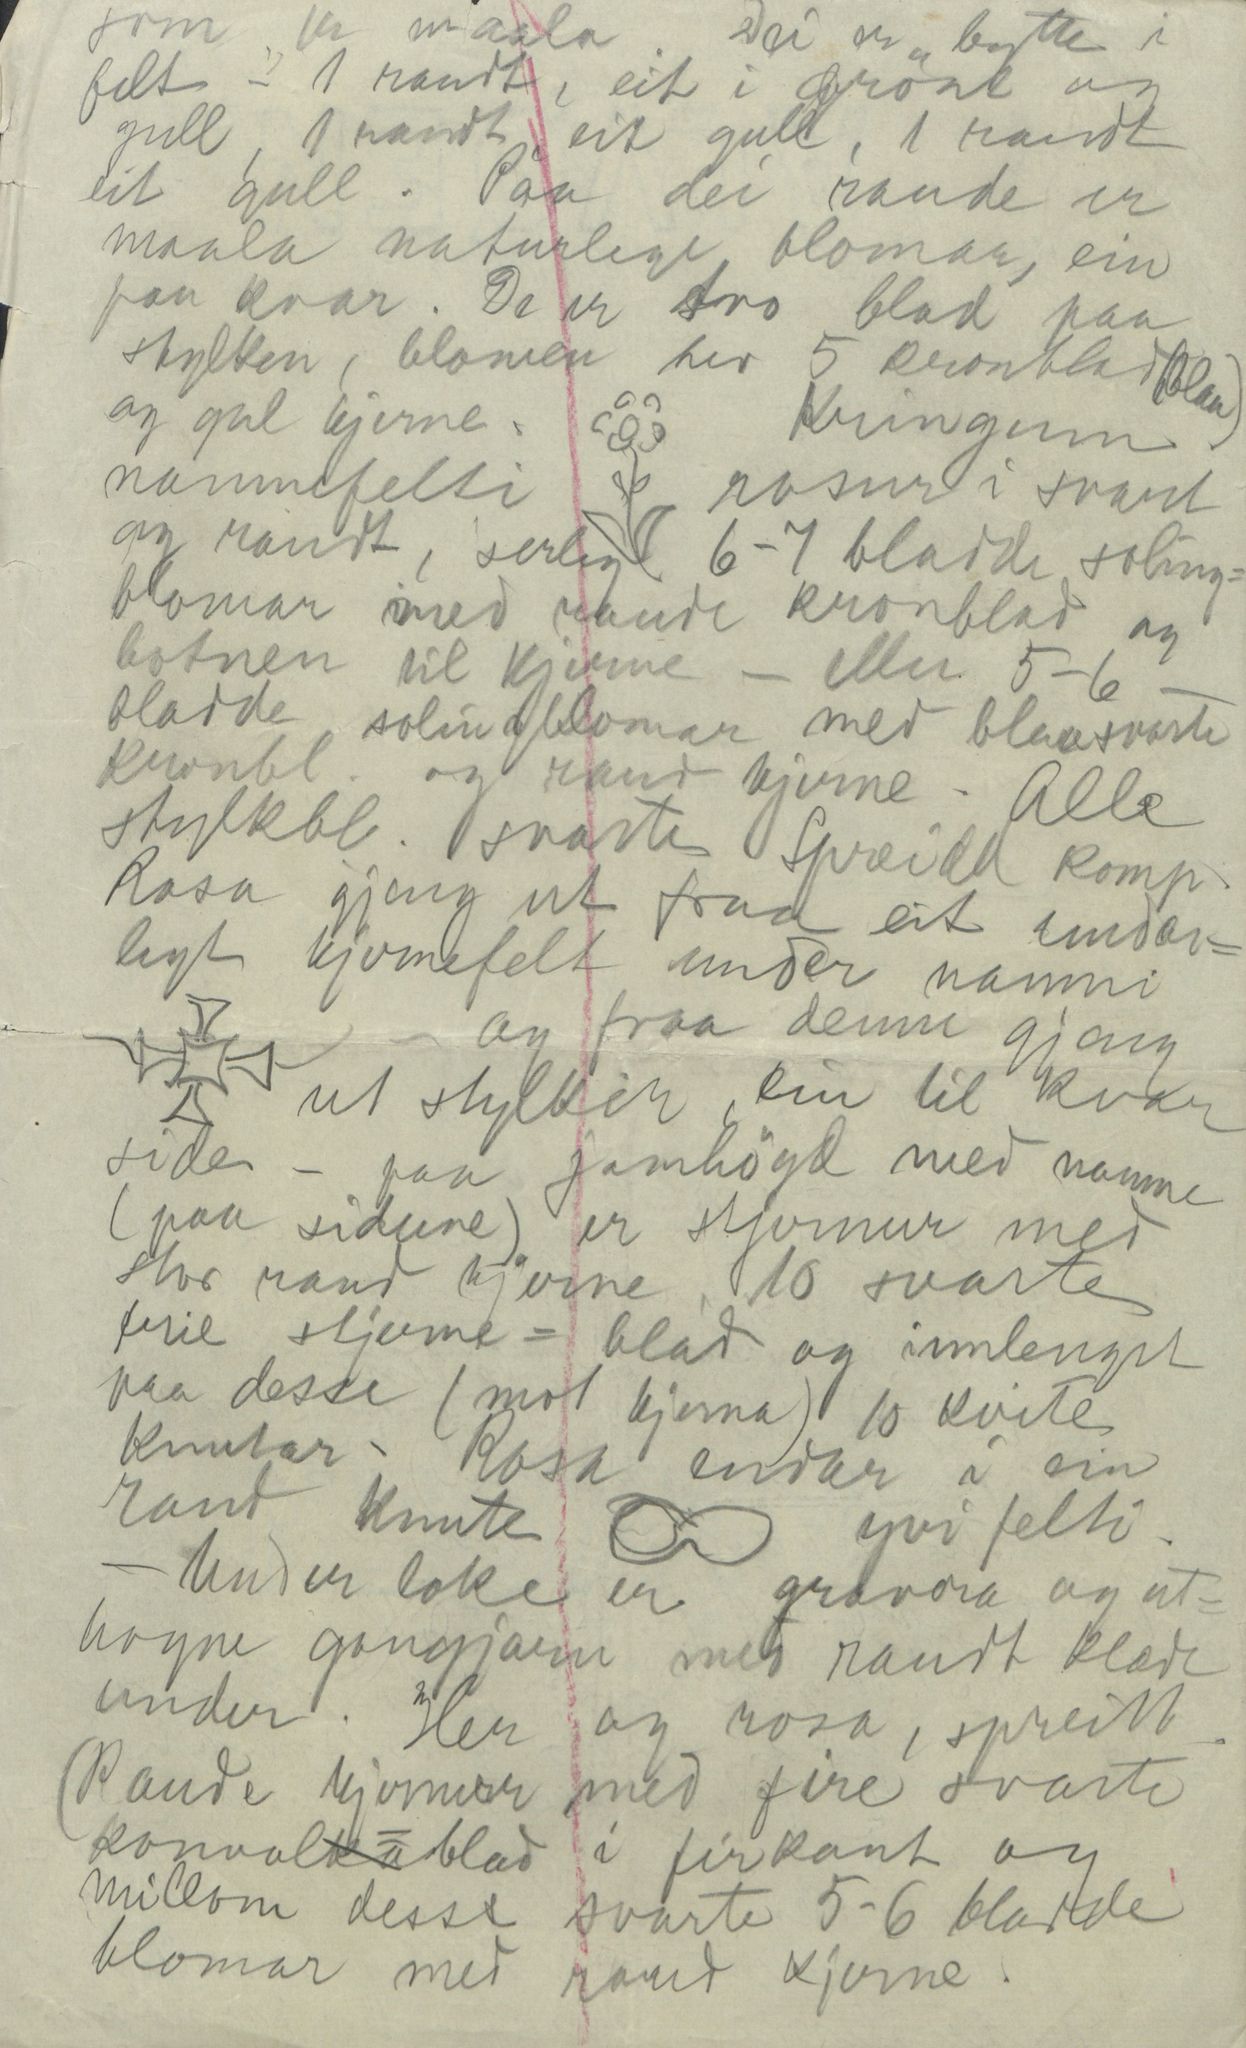 som er maala. Dei er bytte i
felt - 1 raudt, eit i grönt og
gull, 1 raudt, eit gull, 1 raudt
eit gull. Paa dei raude er
maala naturlege blomar, ein
paa kvar. De er tvo blad paa
stylken, blomen hev 5 kronblad (blaa)
og gul kjerne. Kringum
namnefelti rosur i svart
og raudt, serlegt 6-7 bladde soling=
blomar med raude kronblad og
botnen til kjerne - eller 5-6
bladde solingblomar med blaasvarte
kronbl. og raud kjerne. Alle
stylkbl. svarte Spreidd komp.
Rosa gjeng ut fraa eit undar=
legt kjernefelt under namni
- og fraa denne gjeng
ut stylkir, ein til kvar
side - paa jamhögd med namne
(paa sidune) er stjernur med
stor raud kjerne, 10 svarte
frie stjerne= blad og innlengst
paa desse (mot kjerna) 10 kvite
knutar. Rosa endar i ein
raud knute yvi felti.
- Under loke er gravera og ut=
hogne gangjarn med raudt klæde
under. Her og rosa, spreidd.
(Raude kjernur med fire svarte
konval= blad i firkant og
millom desse svarte 5-6 bladde
blomar med raud kjerne.